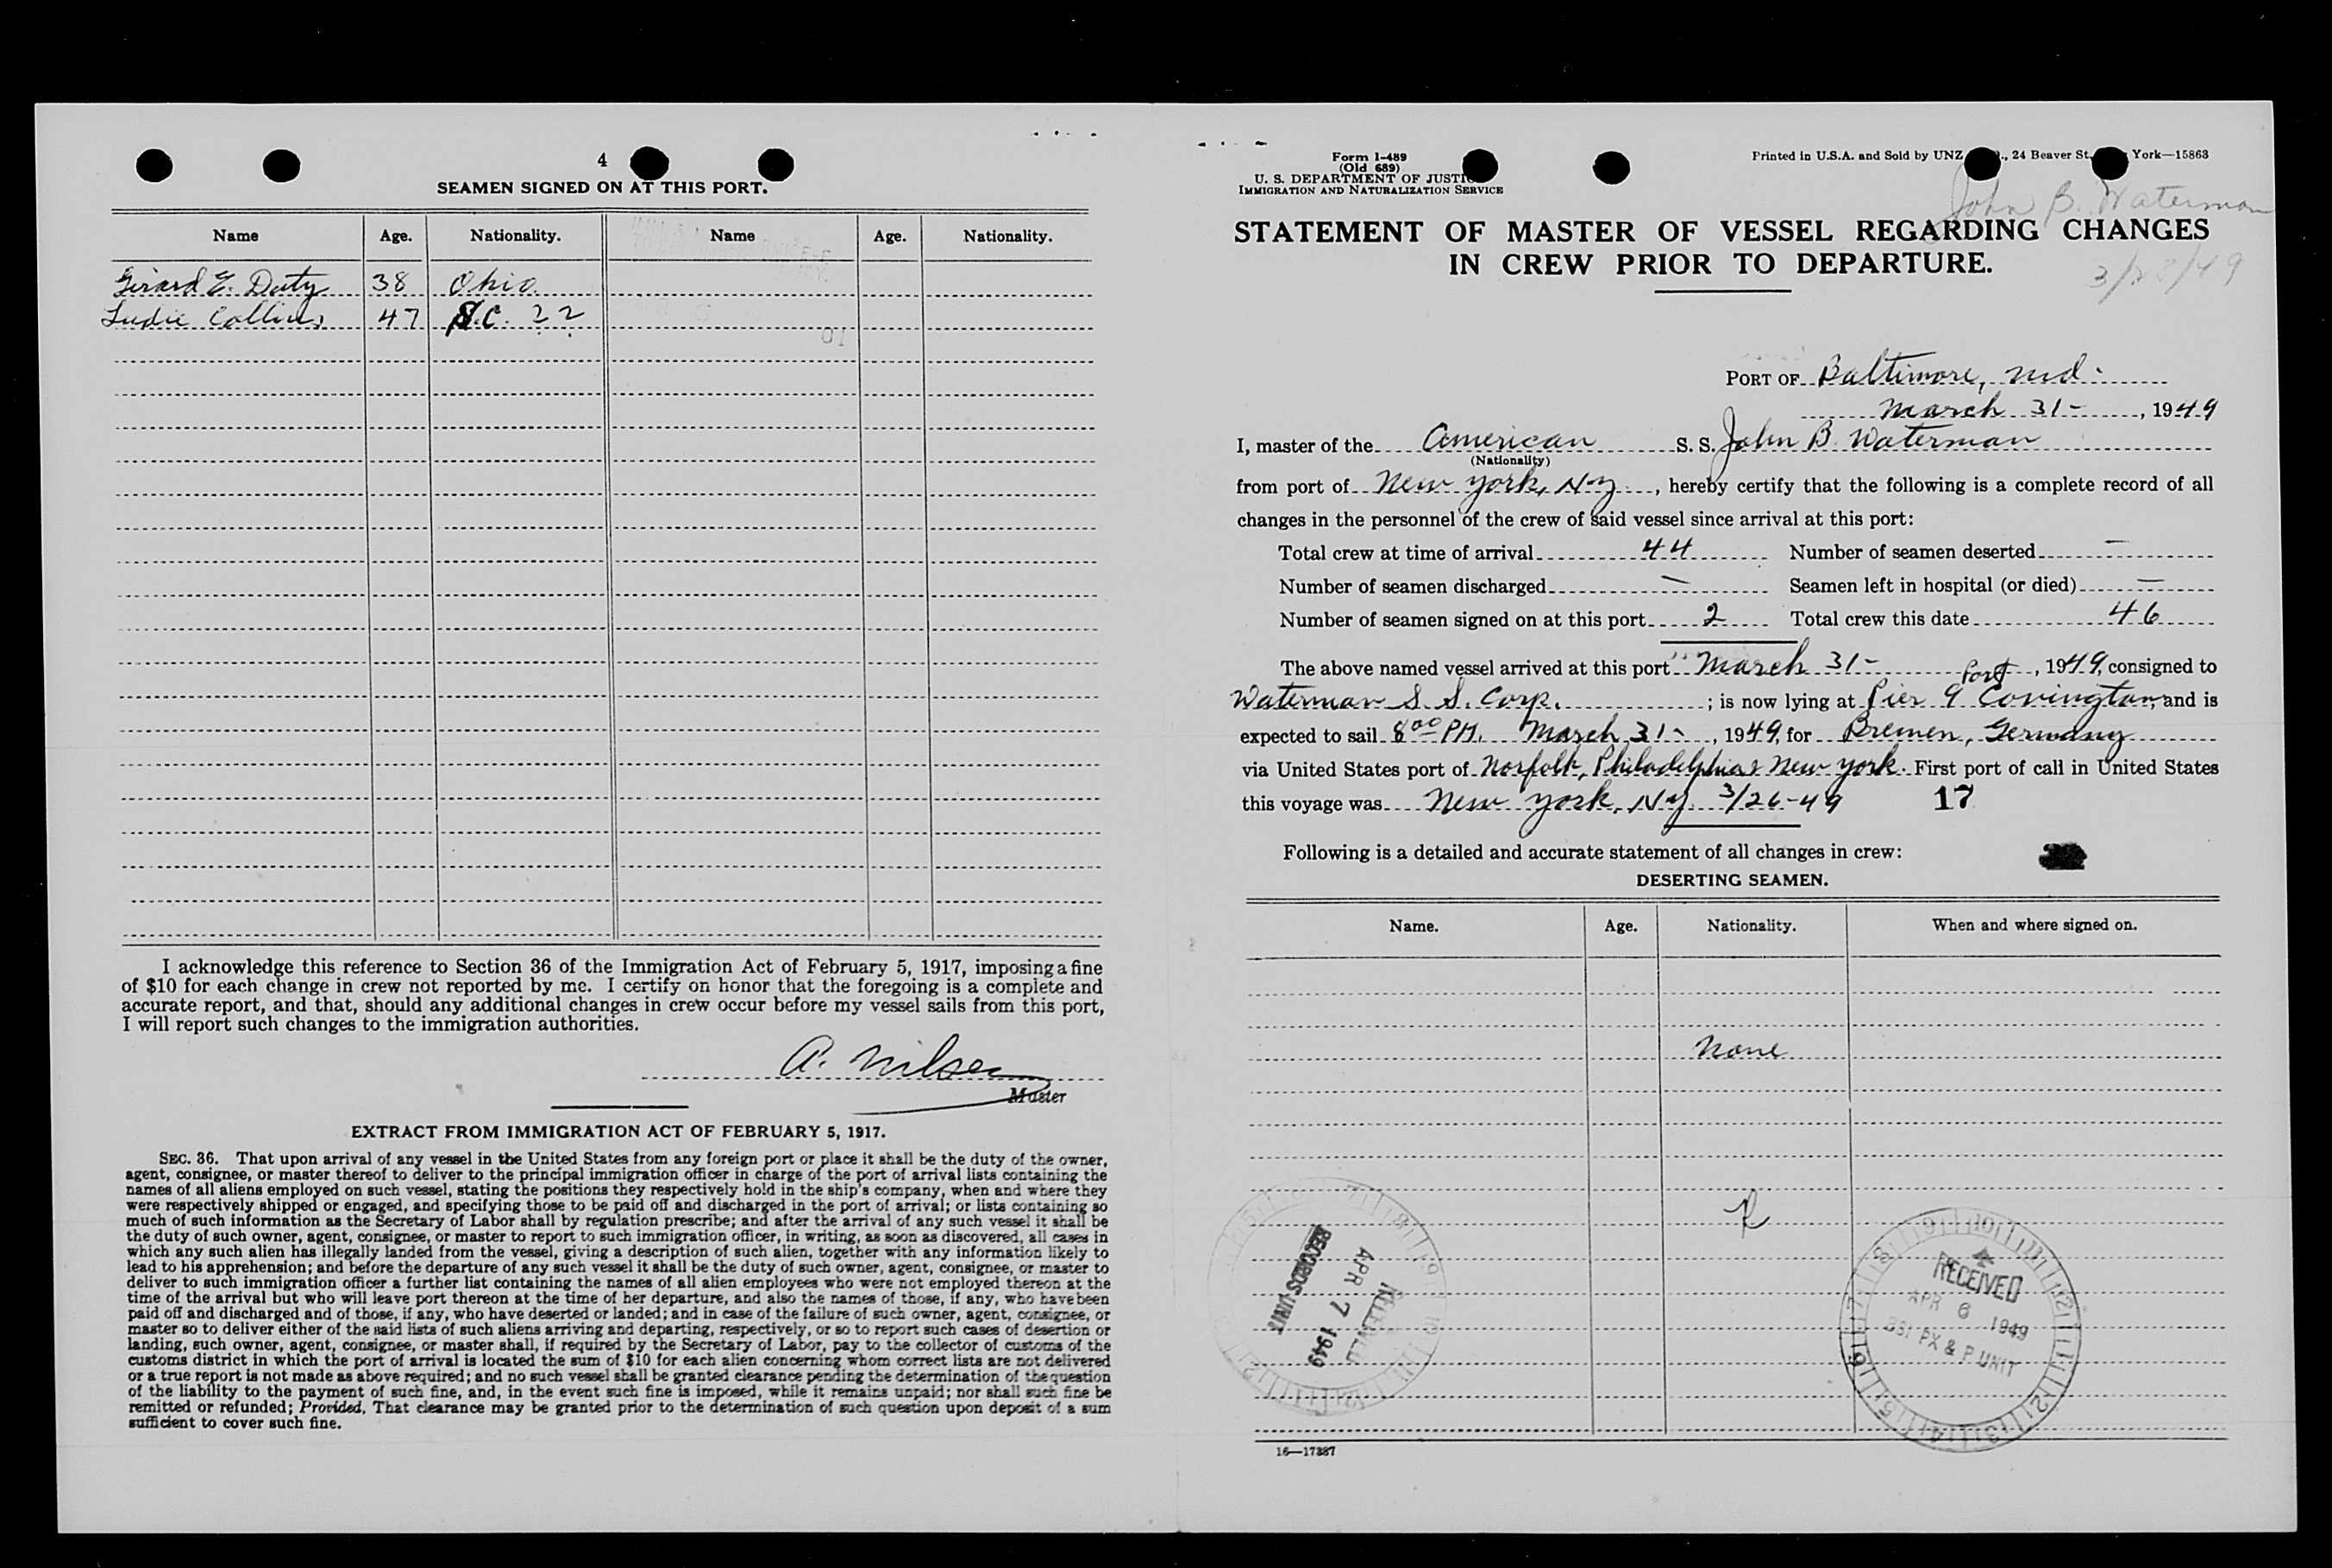 4
SEAMEN SIGNED ON AT THIS PORT.
Name Age. Nationality. Name Age. Nationality.
Girard E. Duty 38 Ohio
Ludie Collins 47 S.C. ??
I acknowledge this reference to Section 36 of the Immigration Act of February 5, 1917, imposing a fine
of $10 for each change in crew not reported by me. I certify on honor that the foregoing is a complete and
accurate report, and that, should any additional changes in crew occur before my vessel sails from this port,
I will report such changes to the immigration authorities.
A. Nilsen
Master
EXTRACT FROM IMMIGRATION ACT OF FEBRUARY 5, 1917.
SEC. 36. That upon arrival of any vessel in the United States from any foreign port or place it shall be the duty of the owner,
agent, consignee, or master thereof to deliver to the principal immigration officer in charge of the port of arrival lists containing the
names of all aliens employed on such vessel, stating the positions they respectively hold in the ship's company, when and where they
were respectively shipped or engaged, and specifying those to be paid off and discharged in the port of arrival; or lists containing so
much of such information as the Secretary of Labor shall by regulation prescribe; and after the arrival of any such vessel it shall be
the duty of such owner, agent, consignee, or master to report to such immigration officer, in writing, as soon as discovered, all cases in
which any such alien has illegally landed from the vessel, giving a description of such alien, together with any information likely to
lead to his apprehension; and before the departure of any such vessel it shall be the duty of such owner, agent, consignee, or master to
deliver to such immigration officer a further list containing the names of all alien employees who were not employed thereon at the
time of the arrival but who will leave port thereon at the time of her departure, and also the names of those, if any, who have been
paid off and discharged and of those, if any, who have deserted or landed; and in case of the failure of such owner, agent, consignee, or
master so to deliver either of the said lists of such aliens arriving and departing, respectively, or so to report such cases of desertion or
landing, such owner, agent, consignee, or master shall, if required by the Secretary of Labor, pay to the collector of customs of the
customs district in which the port of arrival is located the sum of $10 for each alien concerning whom correct lists are not delivered
or a true report is not made as above required; and no such vessel shall be granted clearance pending the determination of the question
of the liability to the payment of such fine, and, in the event such fine is imposed, while it remains unpaid; nor shall such fine be
remitted or refunded; Provided, That clearance may be granted prior to the determination of such question upon deposit of a sum
sufficient to cover such fine.
Form I-489
(Old 689)
U. S. DEPARTMENT OF JUSTI
IMMIGRATION AND NATURALIZATION SERVICE
Printed in U.S.A. and Sold by UNZ ., 24 Beaver St. York—15863
John B. Waterman
3/28/49
STATEMENT OF MASTER OF VESSEL REGARDING CHANGES
IN CREW PRIOR TO DEPARTURE.
PORT OF Baltimore, Md.
March 31-, 1949
I, master of the American S. S. John B. Waterman
(Nationality)
from port of New York, NY, hereby certify that the following is a complete record of all
changes in the personnel of the crew of said vessel since arrival at this port:
Total crew at time of arrival 44 Number of seamen deserted —
Number of seamen discharged — Seamen left in hospital (or died) —
Number of seamen signed on at this port 2 Total crew this date 46
The above named vessel arrived at this port March 31-, 1949, consigned to
Waterman S. S. Corp.; is now lying at Pier 9 Port Covington, and is
expected to sail 8 00 PM. March 31-, 1949, for Bremen, Germany
via United States port of Norfolk, Philadelphia & New York. First port of call in United States
this voyage was New York, NY 3/26-49 17
Following is a detailed and accurate statement of all changes in crew:
DESERTING SEAMEN.
Name. Age. Nationality. When and where signed on.
None
R
RECEIVED
APR 7 1949
RECORDS UNIT
RECEIVED
APR 6 1949
BSI PX & P UNIT
16—17387